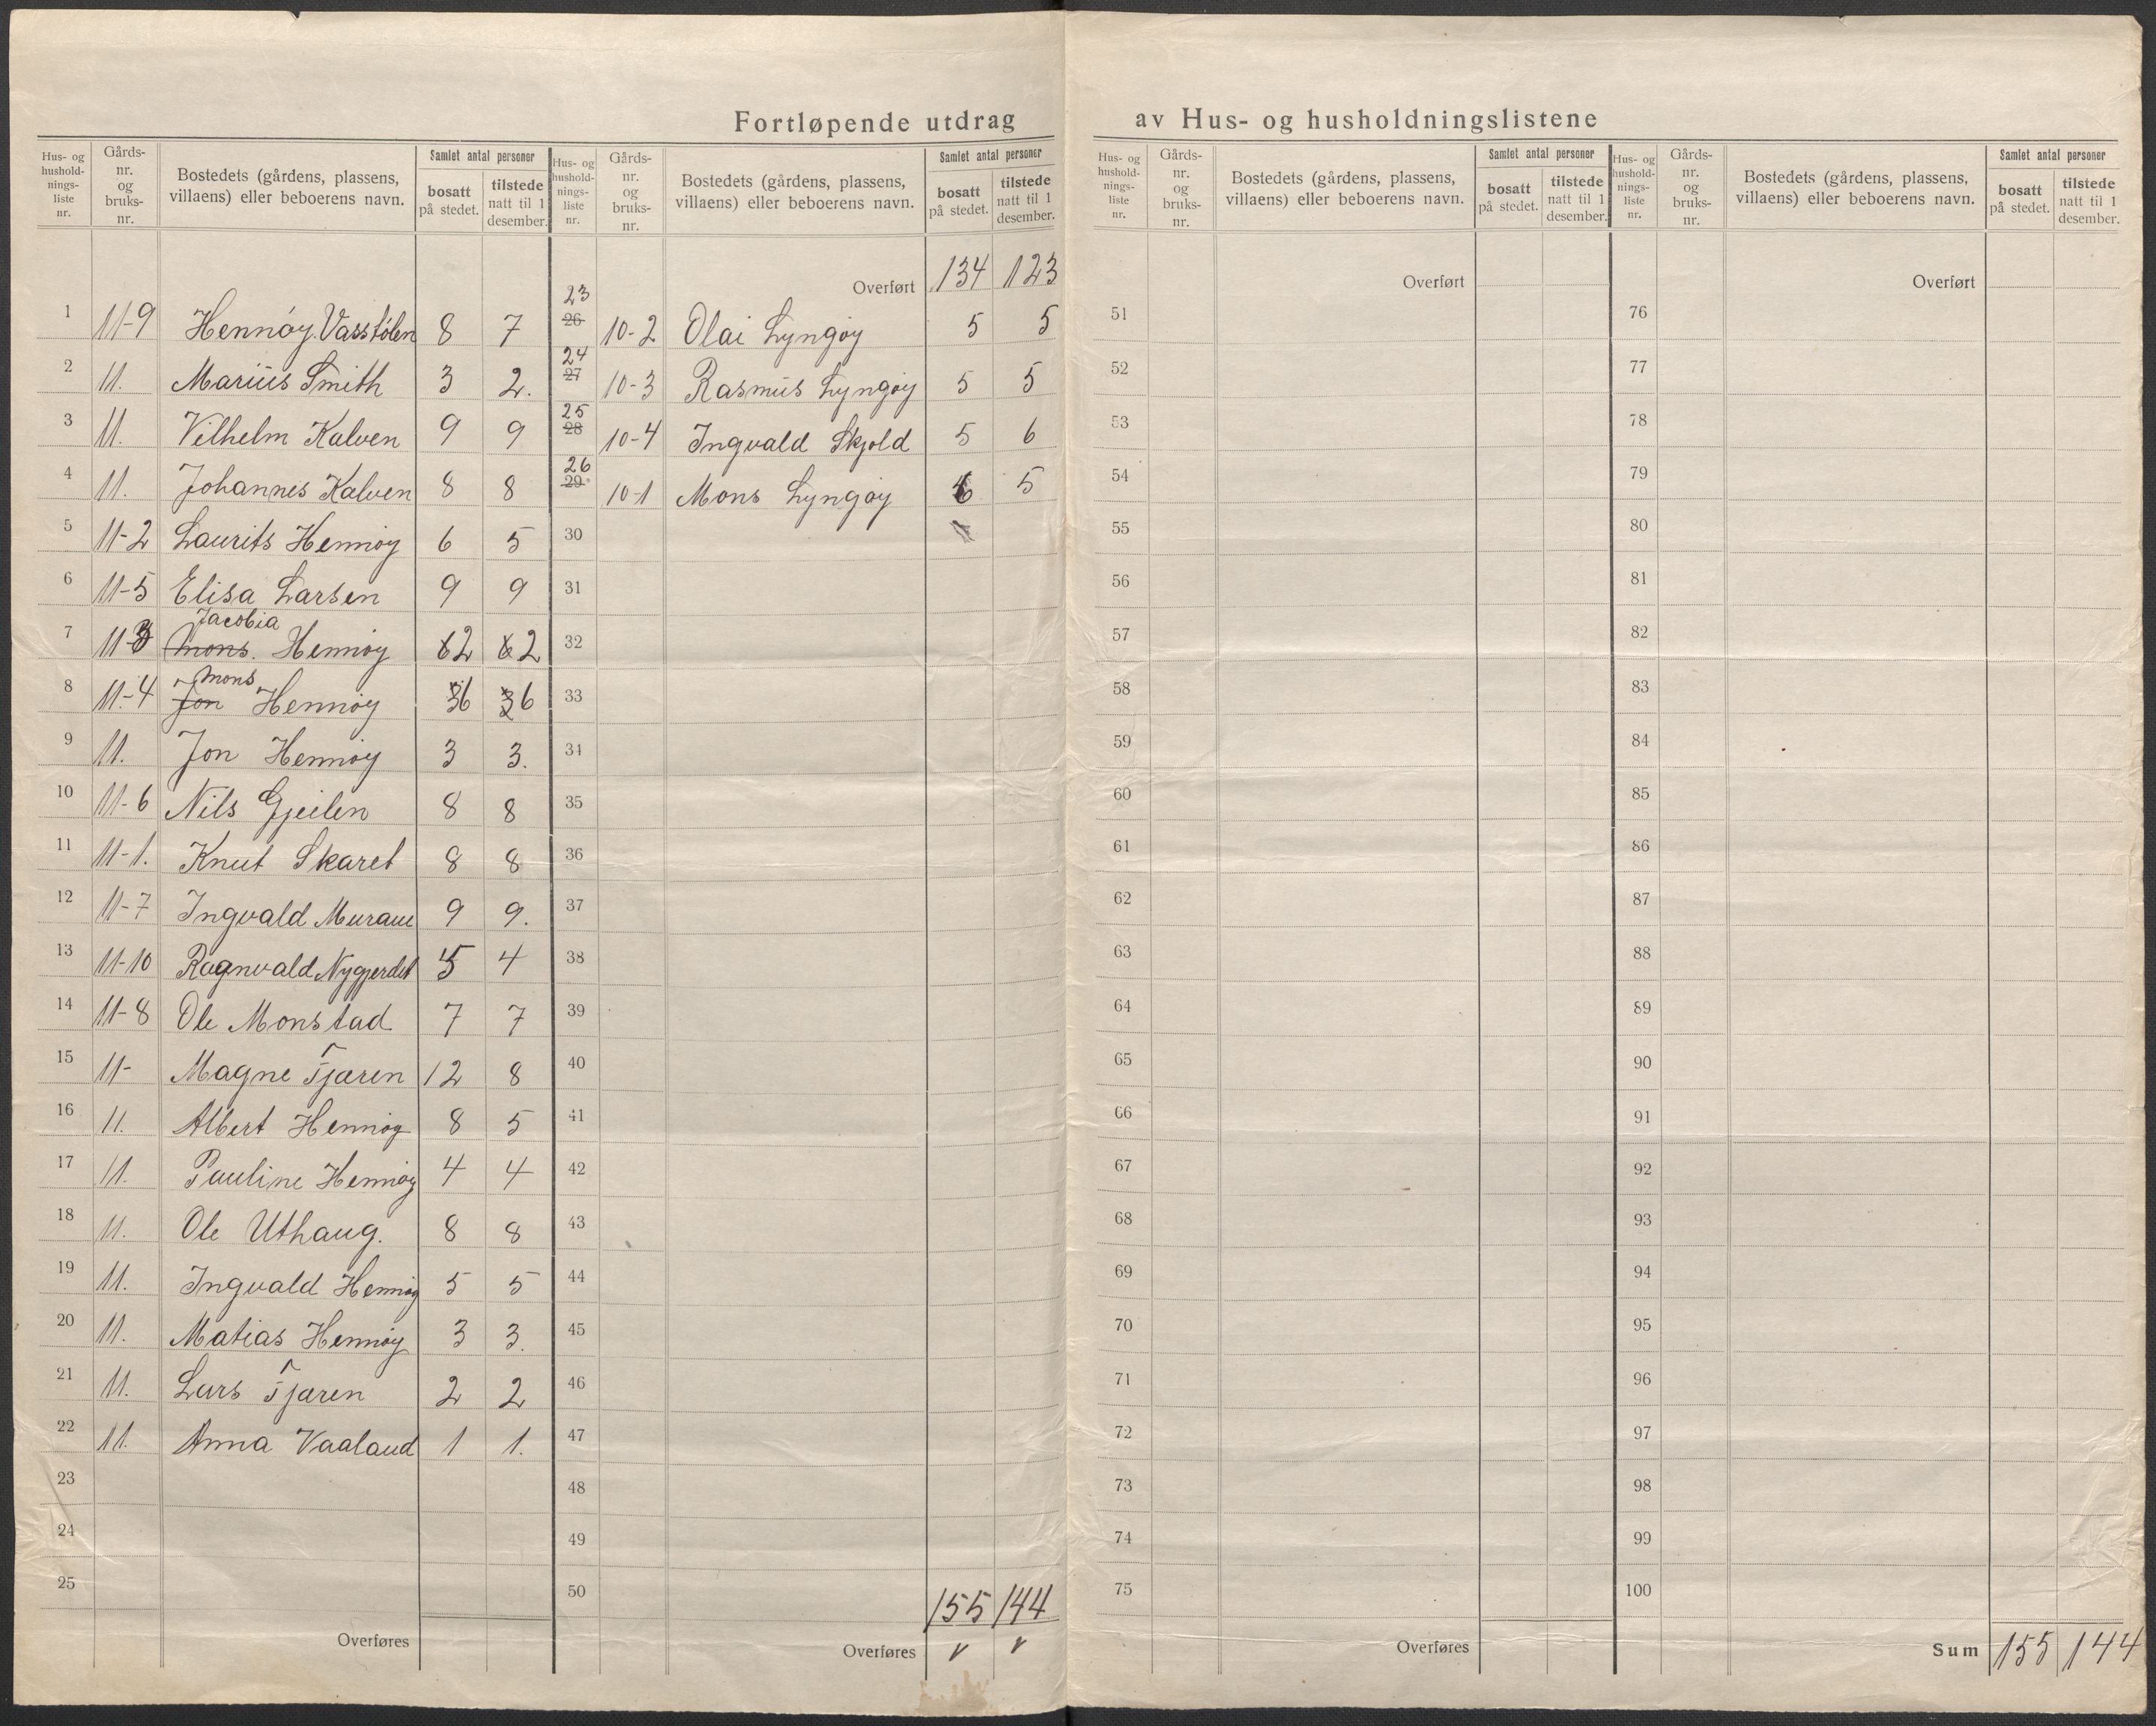 Fortløpende utdrag av Hus- og husholdningslistene
Hus- og husholdnings- liste nr. | Gårds- nr. og bruks- nr. | Bostedets (gårdens, plassens, villaens) eller beboerens navn. | Samlet antal personer | bosatt på stedet. | tilstede natt til 1 desember.
Hus- og husholdnings- liste nr. | Gårds- nr. og bruks- nr. | Bostedets (gårdens, plassens, villaens) eller beboerens navn. | Samlet antal personer | bosatt på stedet. | tilstede natt til 1 desember.
1 11-9 Hennøy. Vasstølen 8 7
2 11. Marius Smith 3 2.
3 11. Vilhelm Kalven 9 9
4 11. Johannes Kalven 8 8
5 11-2 Laurits Hennøy 6 5
6 11-5 Elisa Larsen 9 9
Jacobia
7 11-3 Mons. Hennøy 6 2 6 2
Mons
8 11-4 Jon Hennøy 3 6 3 6
9 11. Jon Hennøy 3 3.
10 11-6 Nils Gjeilen 8 8
11 11-1. Knut Skaret 8 8
12 11-7 Ingvald Muraue 9 9.
13 11-10 Ragnvald Nygjerdet 5 4
14 11-8 Ole Monstad 7 7
15 11- Magne Tjæren 12 8
16 11. Albert Hennøy 8 5
17 11. Pauline Hennøy 4 4
18 11. Ole Uthaug. 8 8
19 11. Ingvald Hennøy 5 5
20 11. Matias Hennøy 3 3.
21 11. Lars Tjæren 2 2
22 11. Anna Vaaland 1 1.
23
24
25
Overføres
Overført 134 123
23
26 10-2 Olai Lyngøy 5 5
24
27 10-3 Rasmus Lyngøy 5 5
25
28 10-4 Ingvald Skjold 5 6
26
29 10-1 Mons Lyngøy 6 5
30
31
32
33
34
35
36
37
38
39
40
41
42
43
44
45
46
47
48
49
50
155 144
Overføres v v
Hus- og husholdnings- liste nr. | Gårds- nr. og bruks- nr. | Bostedets (gårdens, plassens, villaens) eller beboerens navn. | Samlet antal personer | bosatt på stedet. | tilstede natt til 1 desember.
Overført
51
52
53
54
55
56
57
58
59
60
61
62
63
64
65
66
67
68
69
70
71
72
73
74
75
Overføres
Hus- og husholdnings- liste nr. | Gårds- nr. og bruks- nr. | Bostedets (gårdens, plassens, villaens) eller beboerens navn. | Samlet antal personer | bosatt på stedet. | tilstede natt til 1 desember.
Overført
76
77
78
79
80
81
82
83
84
85
86
87
88
89
90
91
92
93
94
95
96
97
98
99
100
Sum 155 144